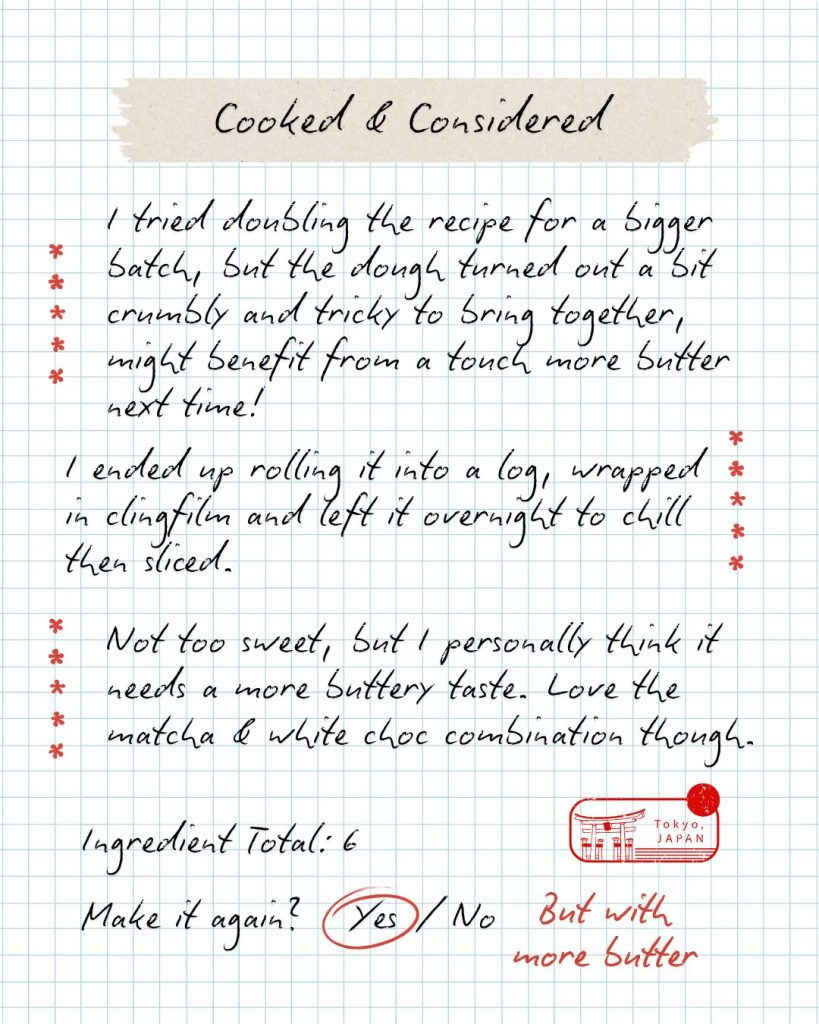 Cooked & Considered
I tried doubling the recipe for a bigger
batch, but the dough turned out a bit
crumbly and tricky to bring together,
might benefit from a touch more butter
next time!
I ended up rolling it into a log, wrapped
in clingfilm and left it overnight to chill
then sliced.
Not too sweet, but I personally think it
needs a more buttery taste. Love the
matcha & white choc combination though.
Tokyo,
JAPAN
Ingredient Total: 6
Make it again? Yes / No
But with
more butter